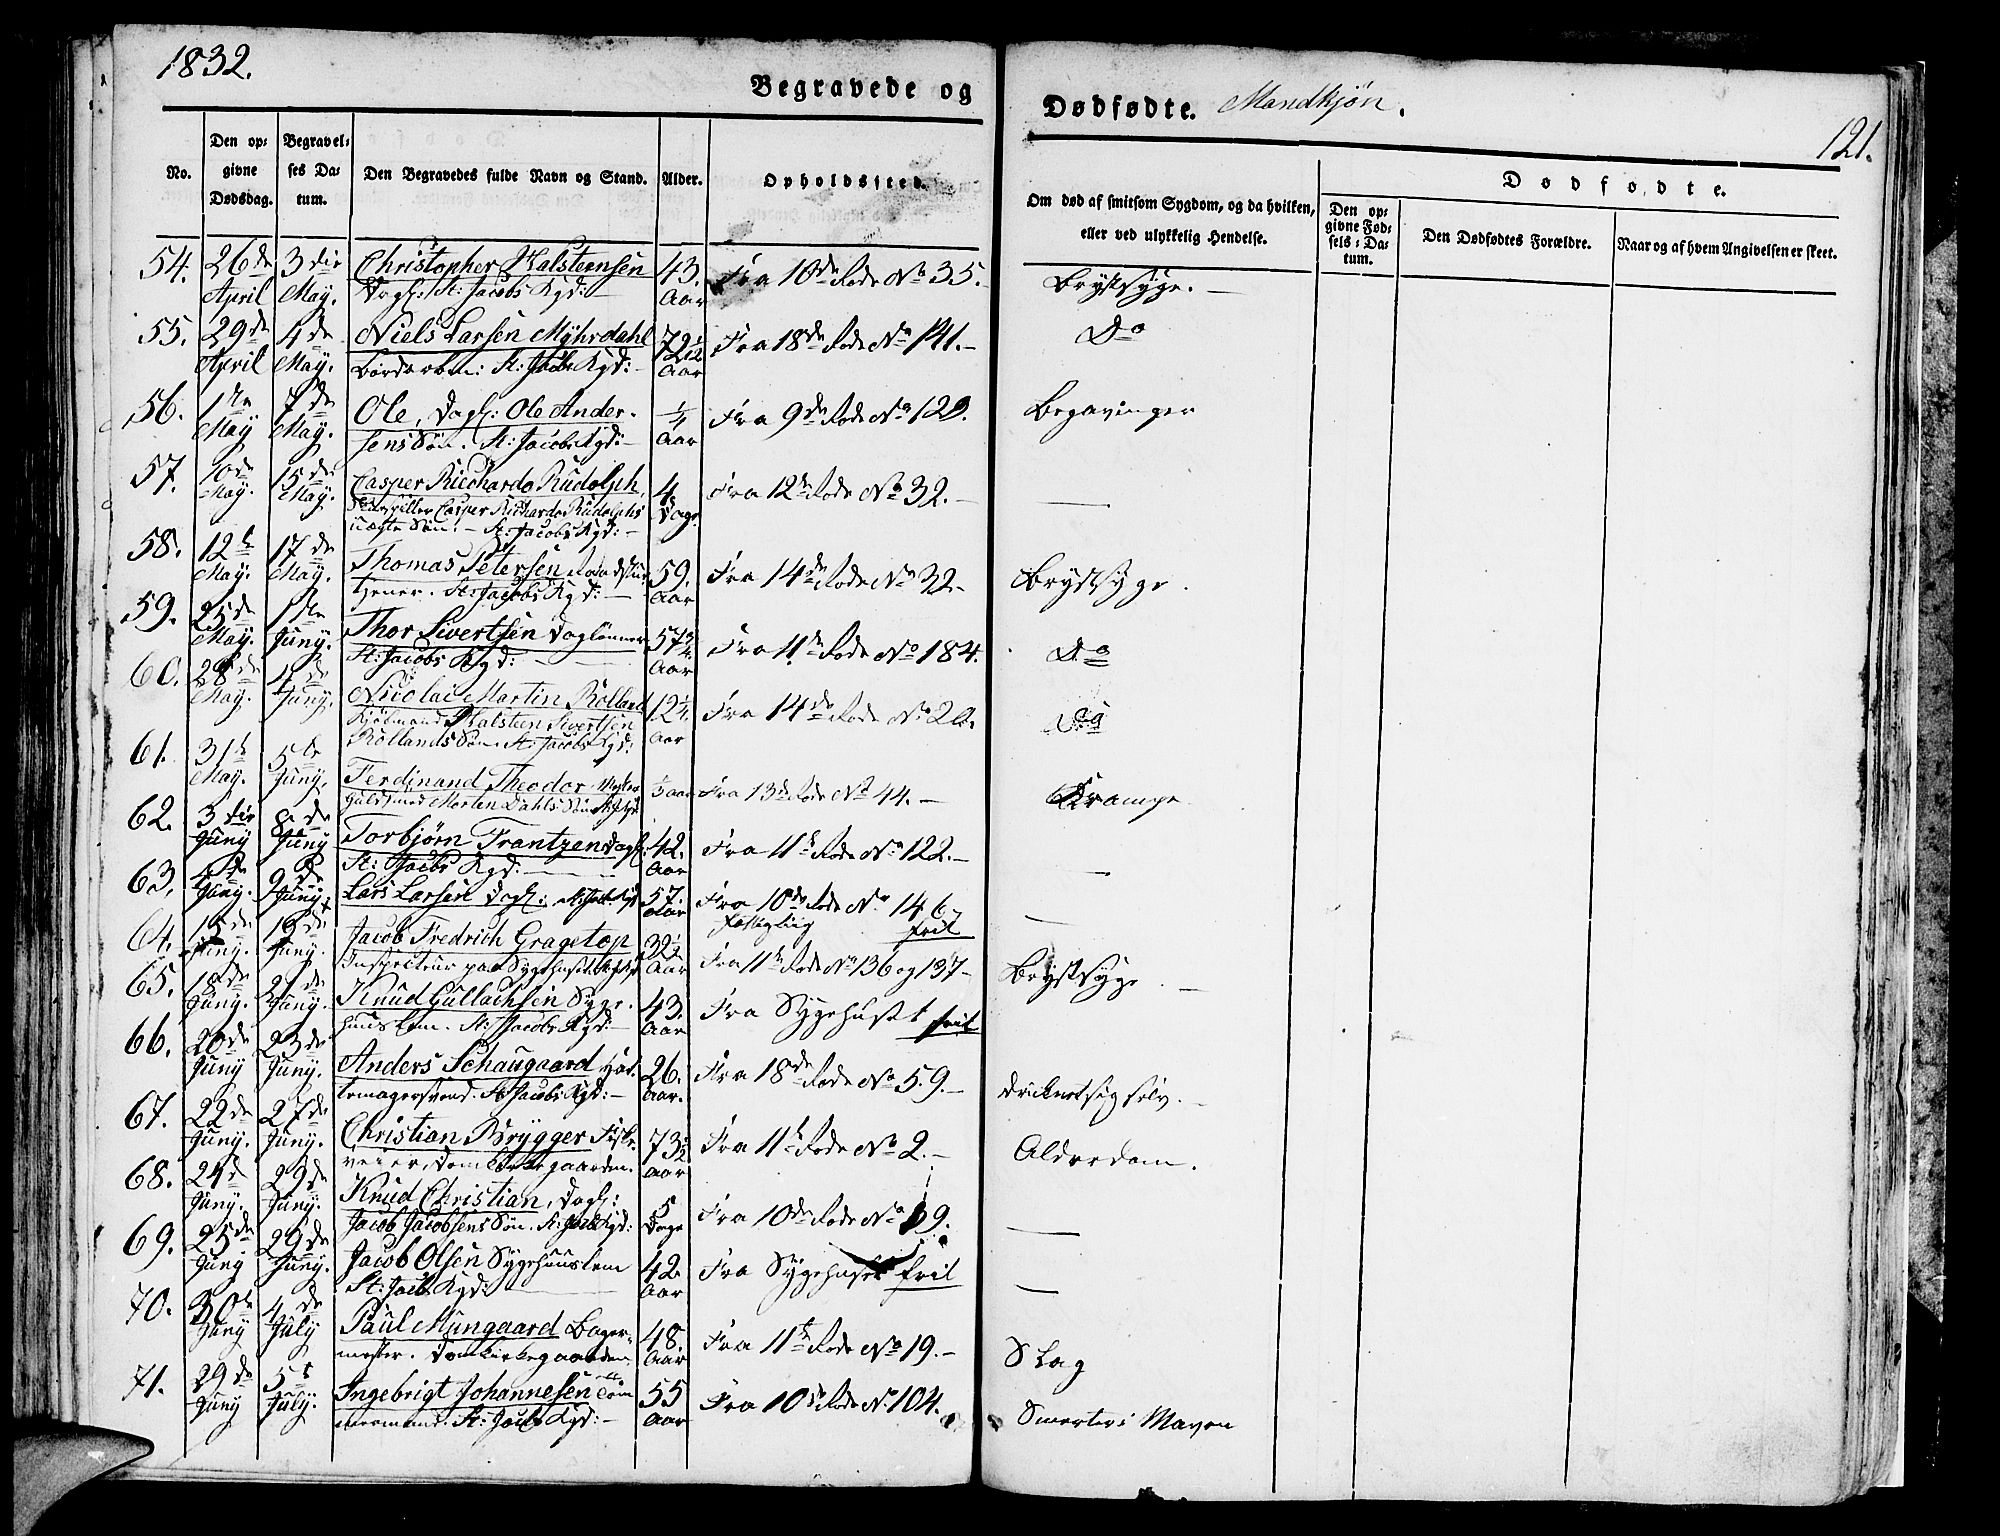 1832.
Begravede og
Dødfødte. Mandkjøn.
121.
No.
Den opgivne Dødsdag.
Begravelses Datum.
Den Begravedes fulde Navn og Stand.
Alder.
Opholdssted.
Om død af smitsom Sygdom, og da hvilken, eller ved ulykkelig Hendelse.
Dødfødte.
Den opgivne Fødsels-Datum.
Den Dødfødtes Forældre.
Naar og af hvem Angivelsen er skeet.
54. 26de April 3die May. Christopher Halsteensen 43. Aar Fra 10de Rode No 35.- Brystsyge.-
Dagl: St: Jacobs Kgd:-
55. 29de April 4de May. Niels Larsen Myhrdahl Aar Fra 18de Rode No 141.- Do
St: Jacobs Kgd:-
56. 1te May 7de May. Ole, Dagl: Ole Ander- 1/4 Aar Fra 9de Rode No 120. Begavinger
sens Søn. St: Jacobs Kgd:-
57. 10de May. 15de May. Casper Richardo Rudolph, 4 Dage Fra 12te Rode No 32.- —
Casper Richardo Rudolphs
uægte Søn.- St: Jacobs Kgd:-
58. 12te May. 17de May. Thomas Petersen Raadstue 59. Aar Fra 14de Rode No 32.- Brystsyge.
tjener. St: Jacobs Kgd:-
59. 25de May. 1te Juny. Thor Sivertsen Daglønner Aar Fra 11te Rode No 184. Do
St: Jacobs Kgd:-
60. 28de May. Juny. Nicolai Martin Rolland 12 Aar Fra 14de Rode No 20. Do
Kjøbmand Halsteen Sivertsen
Rollands Søn. St: Jacobs Kgd:
61. 31te May. 5te Juny. Ferdinand Theodor, Aar Fra 13de Rode No 44.- Krampe
Guldsmed Morten Dahls Søn
62. 3die Juny 8de Juny Torbjørn Frantzen Dagl: 42. Aar Fra 11te Rode No 122.- —
St: Jacobs Kgd:-
63. 4de Juny. 9de Juny Lars Larsen Dagl: St: Jacobs Kgd 57. Aar Fra 10de Rode No 146 —
frit
64. 15de Juny. 19de Juny. Jacob Fredrich Gragetop 39 1/2 Aar Fra 11te Rode No 136 og 137- Brystsyge.-
Inspecteur paa Sygehuset.
65. 18de Juny. 21de Juny. Knud Gullachsen Syge- 43. Aar Fra Sygehuset frit
huuslem. St: Jacobs Kgd:-
66. 20de Juny 23de Juny. Anders Schaugaard Hat- 26. Aar. Fra 18de Rode No 59.- drucknet sig selv.-
temagersvend. St: Jacobs Kgd:-
67. 22de Juny. 27de Juny. Christian Brygger Fiske- 73 1/2 Aar Fra 11te Rode No 2.- Alderdom.
veier, Domkirkegaarden.
68. 24de Juny. 29de Juny. Knud Christian, Dagl: 5 Dage Fra 10de Rode No 9. —
Jacob Jacobsens Søn. St: Jacobs Kgd:
69. 25de Juny 29de Juny. Jacob Olsen Sygehuuslem 42 Aar Fra Sygehuset frit —
St: Jacobs Kgd:
70. 30te Juny 4de July Paul Mungaard Bager- 48. Aar Fra 11te Rode No 19.- Slag
mester. Domkirkegaarden
71. 29de Juny 5te July. Ingebrigt Johannesen Tøm- 55 Aar Fra 10de Rode No 104. Smerter i Maven
mermand. St: Jacobs Kgd:-